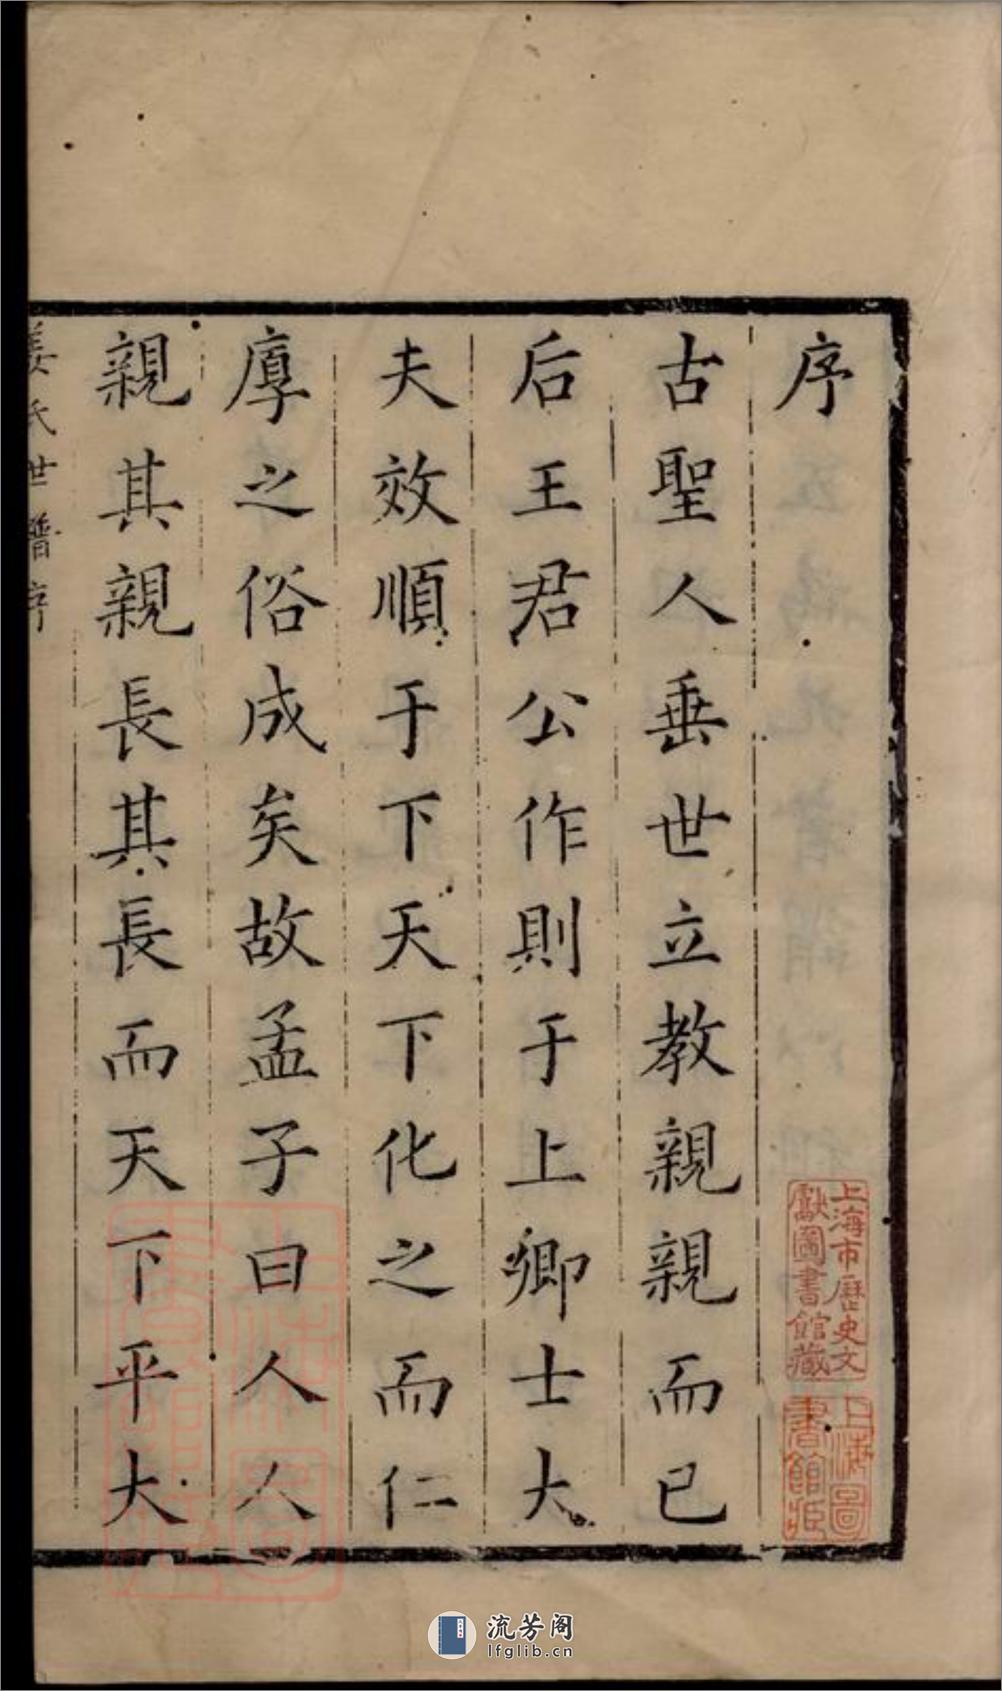 序
古聖人垂世立教親親而已
后王君公作則于上卿士大
夫效順于下天下化之而仁
厚之俗成矣故孟子曰人人
親其親長其長而天下平大
姜氏世譜序
上海市歷史文
獻圖書館藏
上海圖
書館藏
流芳阁
lfglib.cn